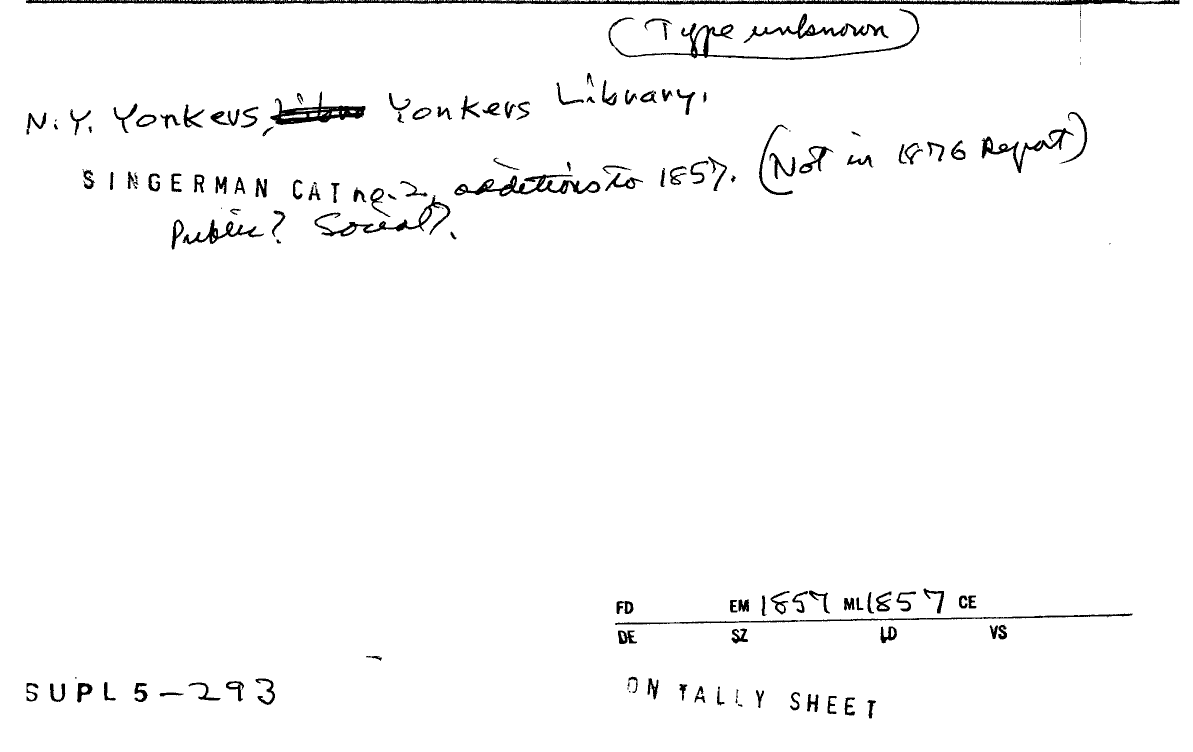 (Type unknown)
N.Y. Yonkers, Yonkers Library.
SINGERMAN CAT no. 2, additions to 1857. (Not in 1876 Report)
Public? Social?.
FD EM 1857 ML 1857 CE
DE SZ LD VS
SUPL 5-293
ON TALLY SHEET